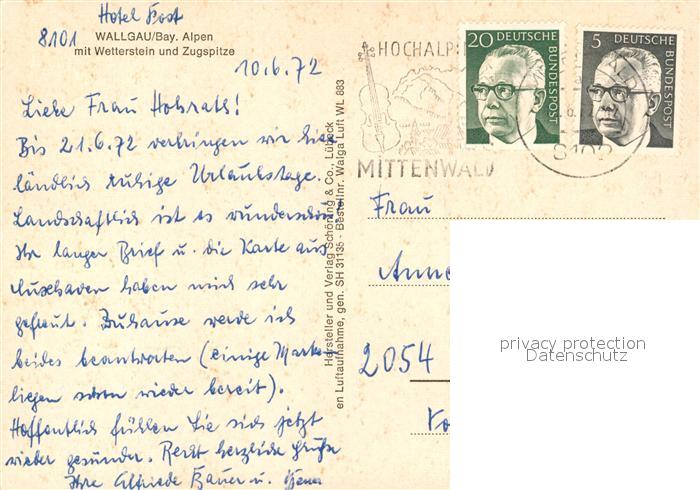 Hotel Post
8101 WALLGAU/Bay. Alpen
mit Wetterstein und Zugspitze
10.6.72
Liebe Frau Hofrath!
Bis 21.6.72 verbringen wir hier
ländlich ruhige Urlaubstage.
Landschaftlich ist es wunderschön.
Ihr langer Brief u. die Karte aus
Cuxhaven haben mich sehr
gefreut. Zuhause werde ich
beides beantworten (einige Marken
liegen schon wieder bereit).
Hoffentlich fühlen Sie sich jetzt
wieder gesünder. Recht herzliche Grüße
Ihre Elfriede Bauer u.
Hersteller und Verlag Schöning & Co., Lübeck
en Luftaufnahme, gen. SH 31135 - Bestellnr. Walga Luft WL 883
HOCHALP
MITTENWALD
20 DEUTSCHE BUNDESPOST
5 DEUTSCHE BUNDESPOST
8102
Frau
Anne
2054
privacy protection
Datenschutz